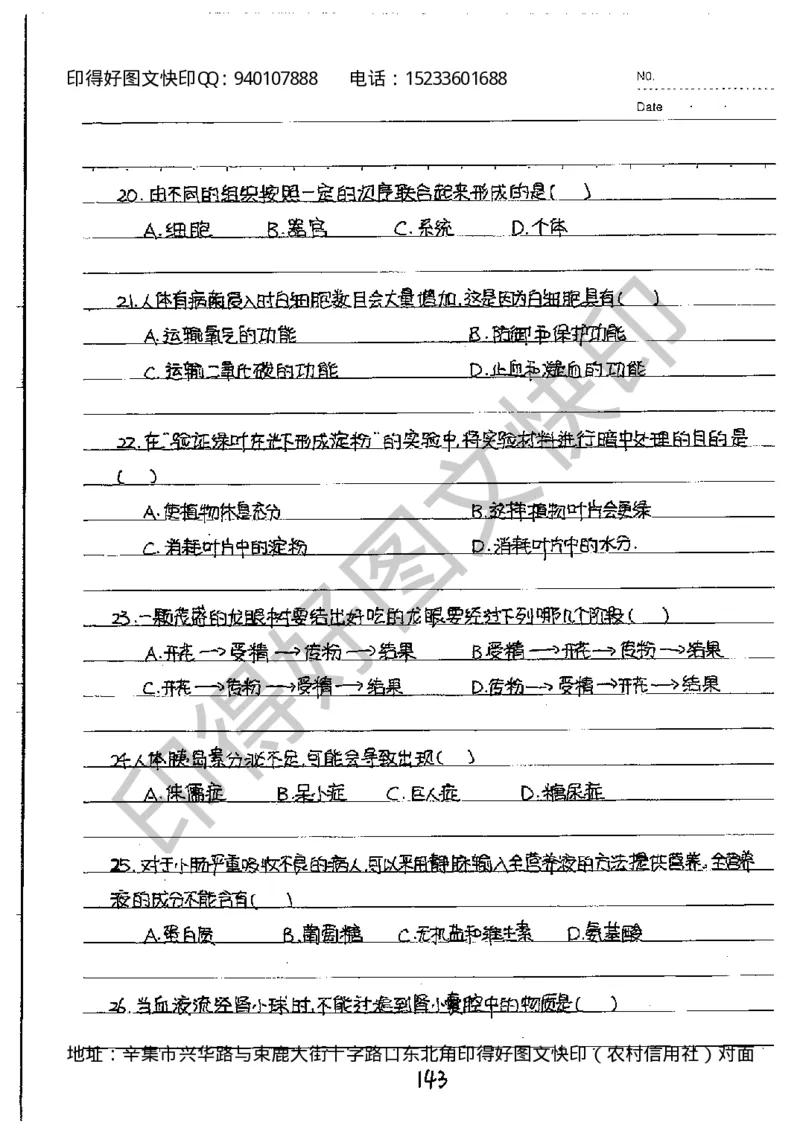 印得好图文快印QQ：940107888 电话：15233601688
NO.
Date · ·
20.由不同的组织按照一定的次序联合起来形成的是( )
A.细胞 B.器官 C.系统 D.个体
21.人体有病菌侵入时白细胞数目会大量增加,这是因为白细胞具有( )
A.运输氧气的功能 B.防御和保护功能
C.运输二氧化碳的功能 D.止血和凝血的功能
22.在"验证绿叶在光下形成淀粉"的实验中,将实验材料进行暗中处理的目的是
( )
A.使植物休息充分 B.这样植物叶片会更绿
C.消耗叶片中的淀粉 D.消耗叶片中的水分.
23.一颗茂盛的龙眼树要结出好吃的龙眼,要经过下列哪几个阶段( )
A.开花→受精→传粉→结果 B.受精→开花→传粉→结果
C.开花→传粉→受精→结果 D.传粉→受精→开花→结果
24.人体胰岛素分泌不足,可能会导致出现( )
A.侏儒症 B.呆小症 C.巨人症 D.糖尿症
25.对于小肠严重吸收不良的病人,可以采用静脉输入全营养液的方法提供营养。全营养
液的成分不能含有( )
A.蛋白质 B.葡萄糖 C.无机盐和维生素 D.氨基酸
26.当血液流经肾小球时,不能过滤到肾小囊腔中的物质是( )
地址：辛集市兴华路与束鹿大街十字路口东北角印得好图文快印（农村信用社）对面
143
印得好图文快印